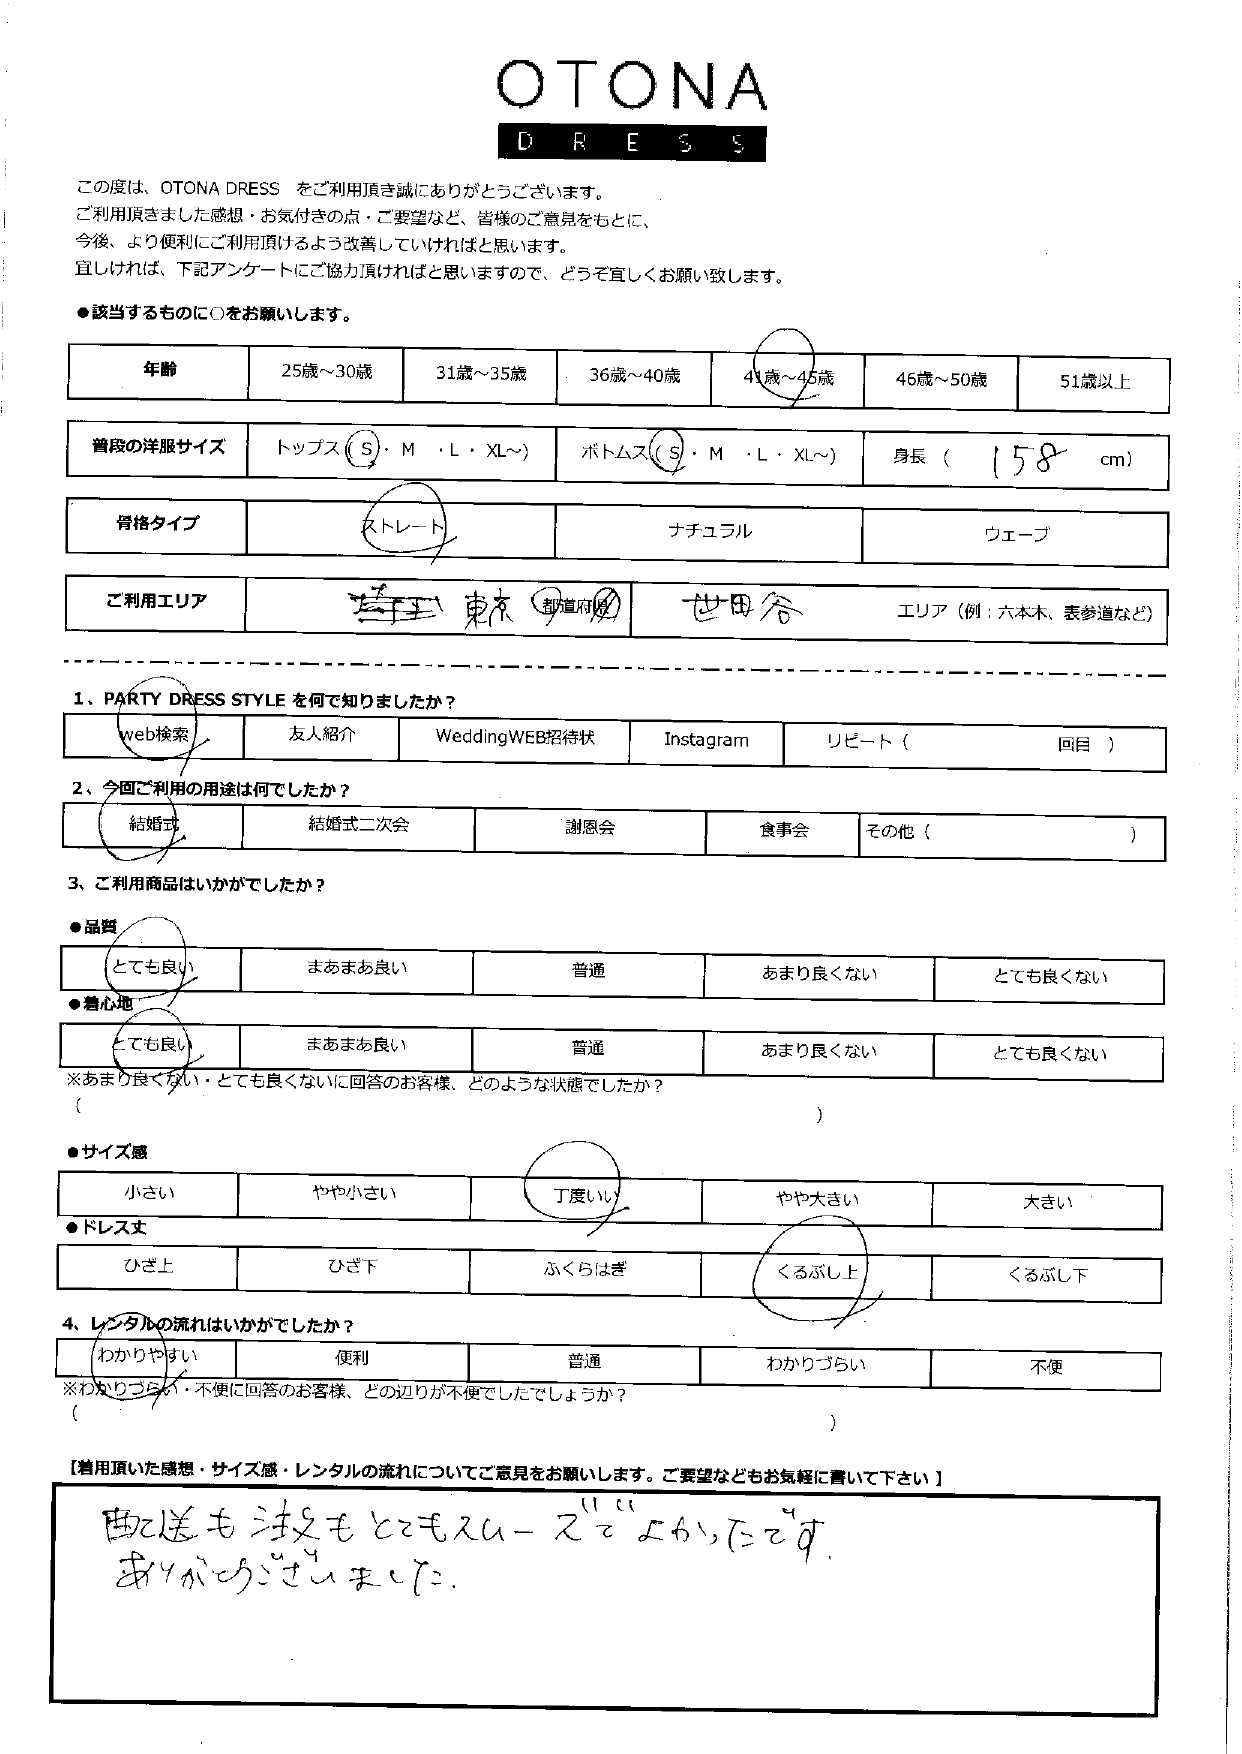 OTONA
DRESS
この度は、OTONA DRESS をご利用頂き誠にありがとうございます。
ご利用頂きました感想・お気付きの点・ご要望など、皆様のご意見をもとに、
今後、より便利にご利用頂けるよう改善していければと思います。
宜しければ、下記アンケートにご協力頂ければと思いますので、どうぞ宜しくお願い致します。
●該当するものに○をお願いします。
年齢 25歳～30歳 31歳～35歳 36歳～40歳 41歳～45歳 46歳～50歳 51歳以上
普段の洋服サイズ トップス（ S ・ M ・L ・ XL～) ボトムス（ S ・ M ・L ・ XL～) 身長 （ 158 cm）
骨格タイプ ストレート ナチュラル ウェーブ
ご利用エリア 埼玉 東京 都道府県 世田谷 エリア（例：六本木、表参道など）
1、PARTY DRESS STYLE を何で知りましたか？
web検索 友人紹介 WeddingWEB招待状 Instagram リピート（ 回目 ）
2、今回ご利用の用途は何でしたか？
結婚式 結婚式二次会 謝恩会 食事会 その他（ ）
3、ご利用商品はいかがでしたか？
●品質
とても良い まあまあ良い 普通 あまり良くない とても良くない
●着心地
とても良い まあまあ良い 普通 あまり良くない とても良くない
※あまり良くない・とても良くないに回答のお客様、どのような状態でしたか？
（ ）
●サイズ感
小さい やや小さい 丁度いい やや大きい 大きい
●ドレス丈
ひざ上 ひざ下 ふくらはぎ くるぶし上 くるぶし下
4、レンタルの流れはいかがでしたか？
わかりやすい 便利 普通 わかりづらい 不便
※わかりづらい・不便に回答のお客様、どの辺りが不便でしたでしょうか？
（ ）
【着用頂いた感想・サイズ感・レンタルの流れについてご意見をお願いします。ご要望などもお気軽に書いて下さい 】
配送も注文もとてもスムーズでよかったです.
ありがとうございました.